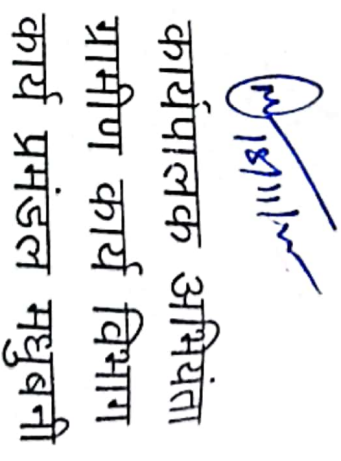 18/11/
कार्यपालक अभियंता
ग्रामीण कार्य विभाग
कार्य प्रमंडल मधुबनी